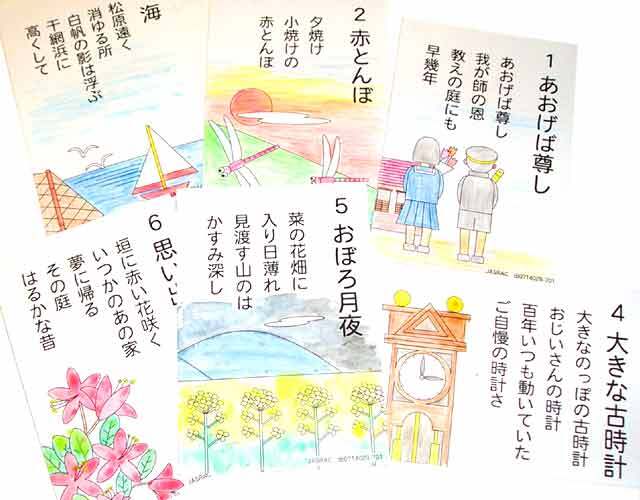 1 あおげば尊し
あおげば尊し
我が師の恩
教えの庭にも
早幾年
JASRAC
2 赤とんぼ
夕焼け
小焼けの
赤とんぼ
海
松原遠く
消ゆる所
白帆の影は浮ぶ
干網浜に
高くして
4 大きな古時計
大きなのっぽの古時計
おじいさんの時計
百年いつも動いていた
ご自慢の時計さ
5 おぼろ月夜
菜の花畑に
入り日薄れ
見渡す山のは
かすみ深し
JASRAC
6 思い
垣に赤い花咲く
いつかのあの家
夢に帰る
その庭
はるかな昔
JASRAC